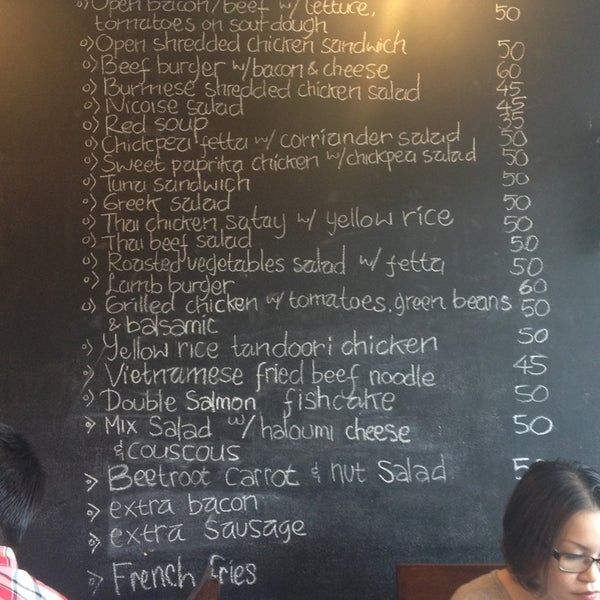 o) Open bacon/beef w/ lettuce, 50
tomatoes on sourdough
o) Open shredded chicken sandwich 50
o) Beef burger w/bacon & cheese 60
o) Burmese shredded chicken salad 45
o) Nicoise salad 45
o) Red soup 35
o) Chickpea/fetta w/ corriander salad 50
o) Sweet paprika chicken w/chickpea salad 50
o) Tuna sandwich 50
o) Greek salad 50
o) Thai chicken satay w/ yellow rice 50
o) Thai beef salad 50
o) Roasted vegetables salad w/ fetta 50
o) Lamb burger 60
o) Grilled chicken w/tomatoes, green beans 50
& balsamic
o) Yellow rice tandoori chicken 50
o) Vietnamese fried beef noodle 45
o) Double Salmon fishcake 50
o) Mix Salad w/haloumi cheese 50
& couscous
o) Beetroot Carrot & nut Salad
o) extra bacon
o) extra Sausage
o) French fries